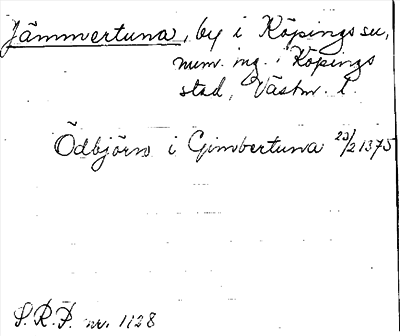 Jämmertuna, by i Köpings sn,
num. ing. i Köpings
stad, Västm. l.
Ödbjörn i Gimbertuna 23/2 1375
S.R.P. nr. 1128